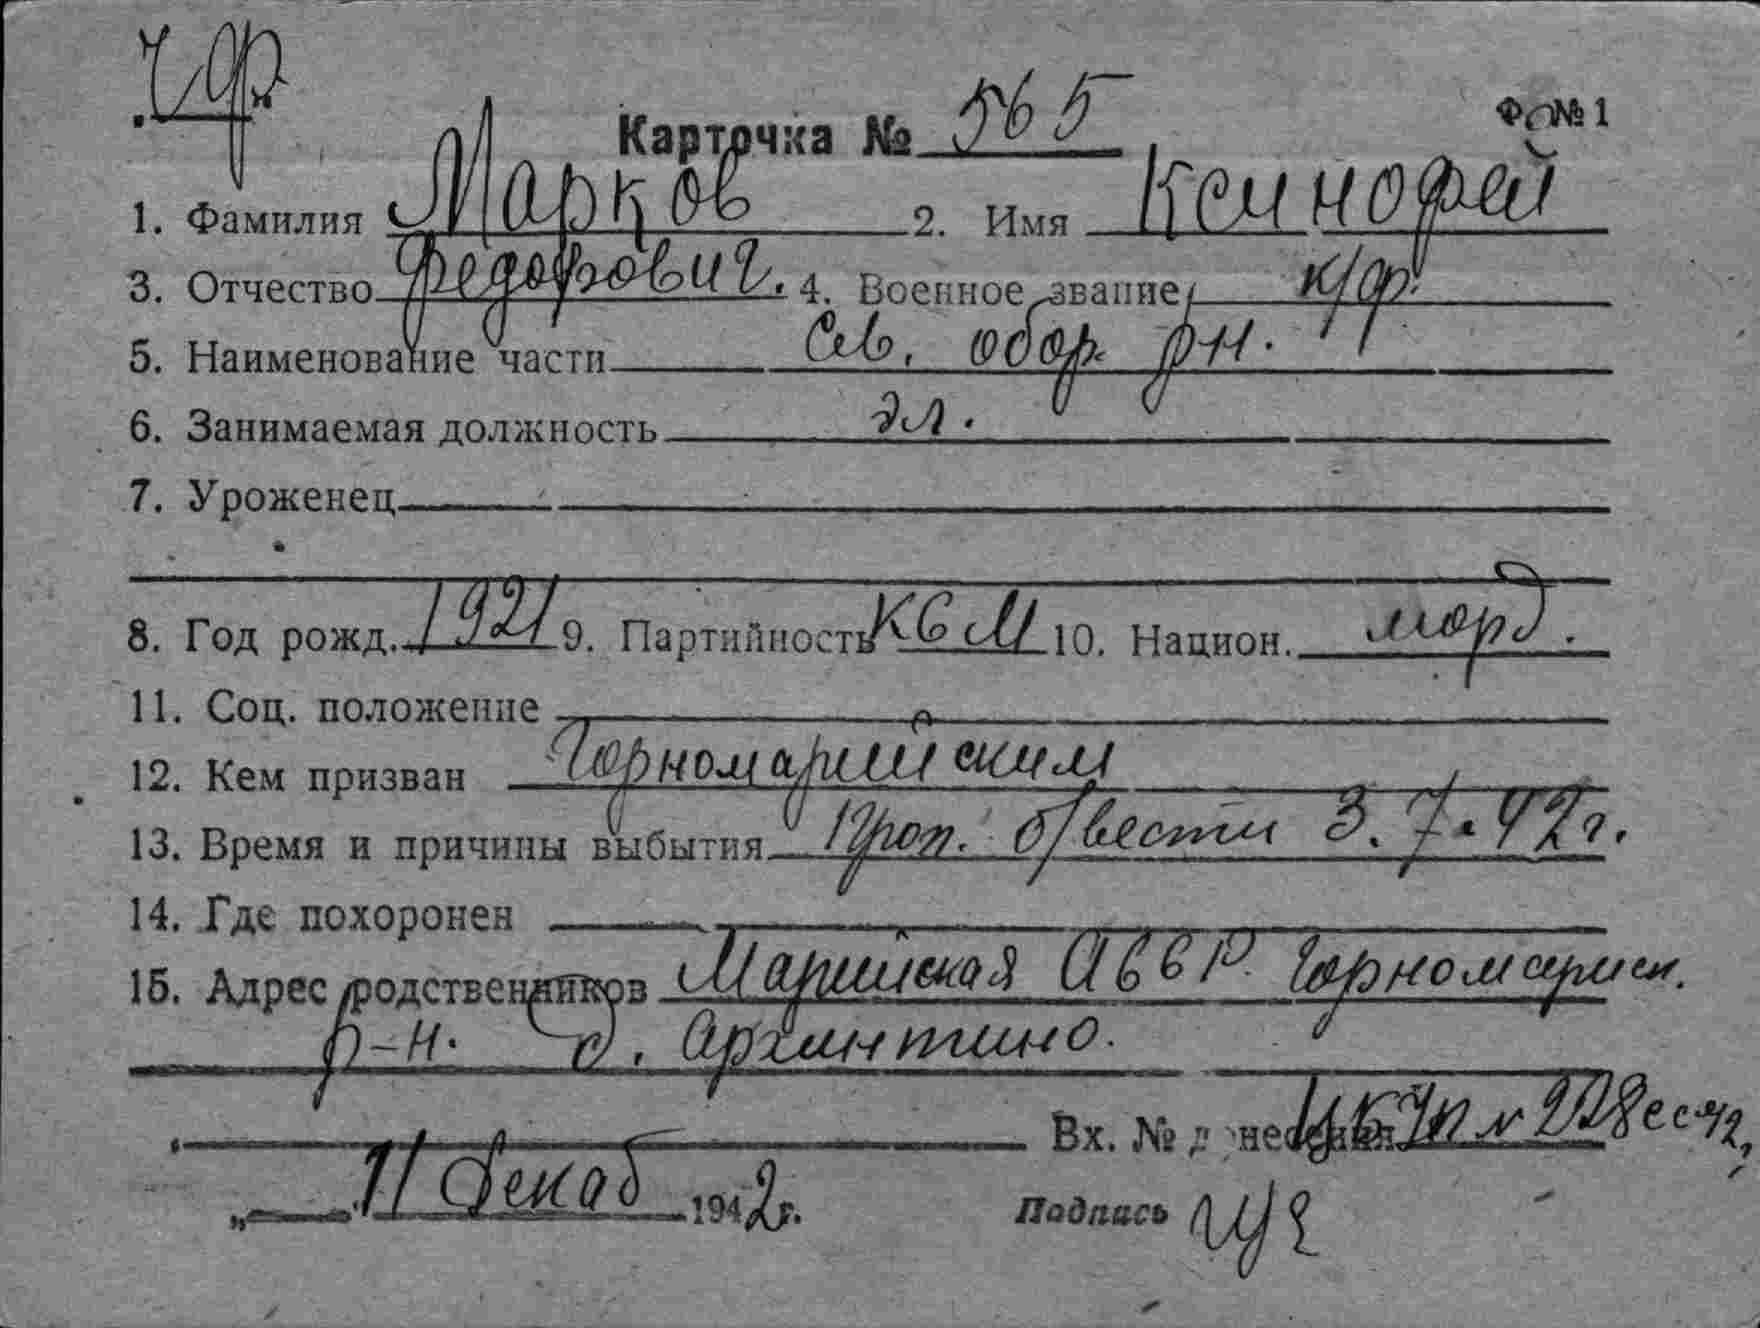 ЧФ
Карточка № 565
Ф. № 1
1. Фамилия Марков 2. Имя Ксинофей
3. Отчество Федорович. 4. Военное звание к/ф.
5. Наименование части Сев. обор. рн.
6. Занимаемая должность эл.
7. Уроженец
8. Год рожд. 1921 9. Партийность КСМ 10. Национ. морд.
11. Соц. положение
12. Кем призван Горномарийским
13. Время и причины выбытия Проп. б/вести 3.7.42г.
14. Где похоронен
15. Адрес родственников Марийская АССР Горномарийск.
р-н. д. Архинтино.
Вх. № донесения
11 Декаб 1942 г. Подпись